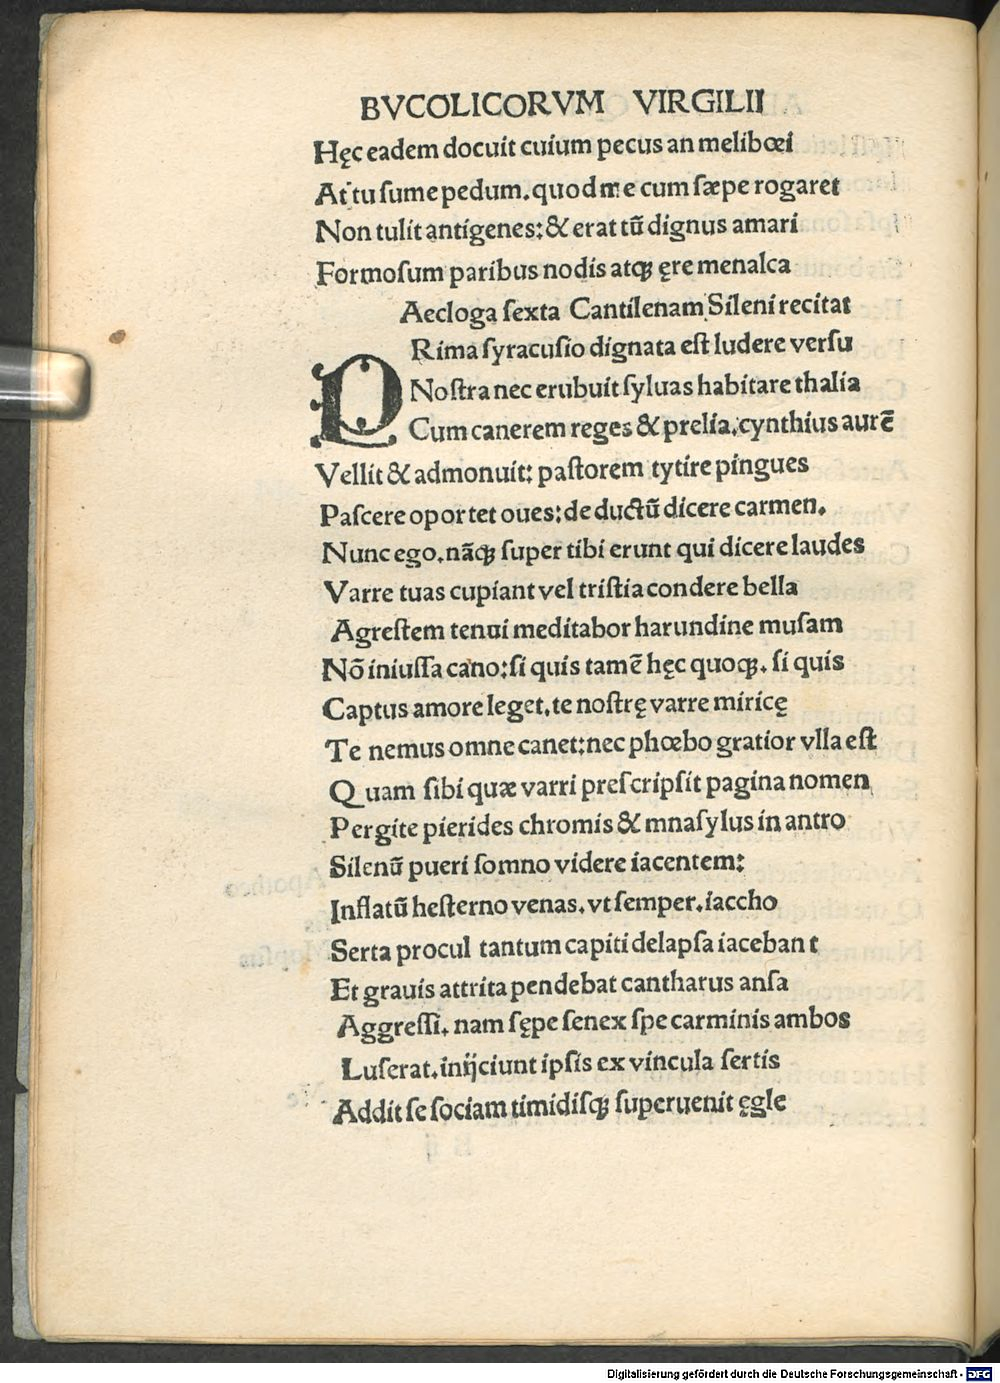 BVCOLICORVM VIRGILII
Hęc eadem docuit cuium pecus an melibœi
At tu ſume pedum. quod me cum ſæpe rogaret
Non tulit antigenes: & erat tū dignus amari
Formoſum paribus nodis atqꝫ ęre menalca
Aecloga ſexta Cantilenam Sileni recitat
PRima ſyracuſio dignata eſt ludere verſu
Noſtra nec erubuit ſyluas habitare thalia
Cum canerem reges & prelia. cynthius aurē
Vellit & admonuit: paſtorem tytire pingues
Paſcere oportet oues: de ductū dicere carmen.
Nunc ego. nāqꝫ ſuper tibi erunt qui dicere laudes
Varre tuas cupiant vel triſtia condere bella
Agreſtem tenui meditabor harundine muſam
Nō iniuſſa cano: ſi quis tamē hęc quoqꝫ. ſi quis
Captus amore leget. te noſtrę varre miricę
Te nemus omne canet: nec phœbo gratior vlla eſt
Quam ſibi quæ varri preſcripſit pagina nomen
Pergite pierides chromis & mnaſylus in antro
Silenū pueri ſomno videre iacentem:
Inflatū heſterno venas. vt ſemper. iaccho
Serta procul tantum capiti delapſa iacebant
Et grauis attrita pendebat cantharus anſa
Aggreſſi. nam ſępe ſenex ſpe carminis ambos
Luſerat. inijciunt ipſis ex vincula ſertis
Addit ſe ſociam timidiſqꝫ ſuperuenit ęgle
Digitalisierung gefördert durch die Deutsche Forschungsgemeinschaft - DFG